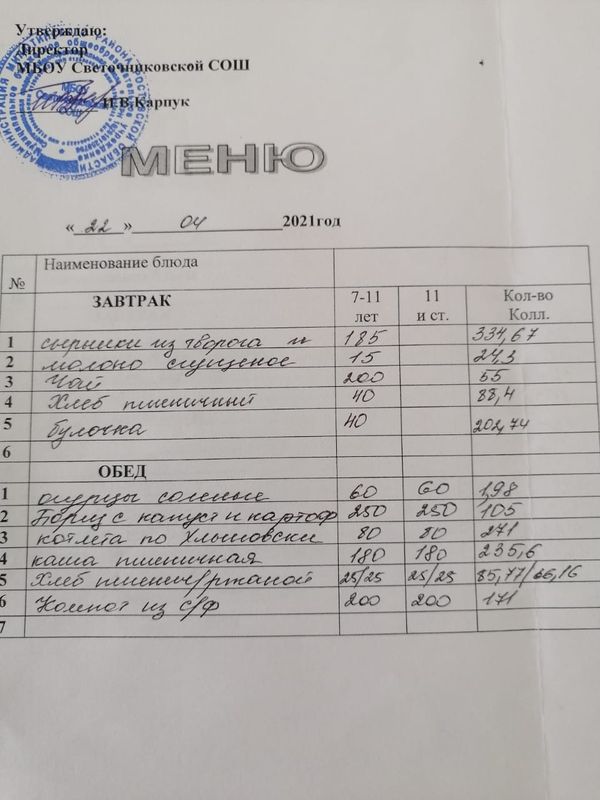 Утверждаю:
Директор
МБОУ Светочниковской СОШ
И.В.Карпук
МЕНЮ
«22» 04 2021год
№ Наименование блюда
ЗАВТРАК 7-11 лет 11 и ст. Кол-во Колл.
1 сырники из творога и 185 334,67
2 молоко сгущеное 15 24,3
3 Чай 200 55
4 Хлеб пшеничный 40 88,4
5 булочка 40 202,74
6
ОБЕД
1 огурцы соленые 60 60 1,98
2 Борщ с капуст и картоф 250 250 105
3 котлета по Хлыновски 80 80 271
4 каша пшеничная 180 180 235,6
5 Хлеб пшенич/ржаной 25/25 25/25 85,77/66,16
6 Компот из с/ф 200 200 171
7